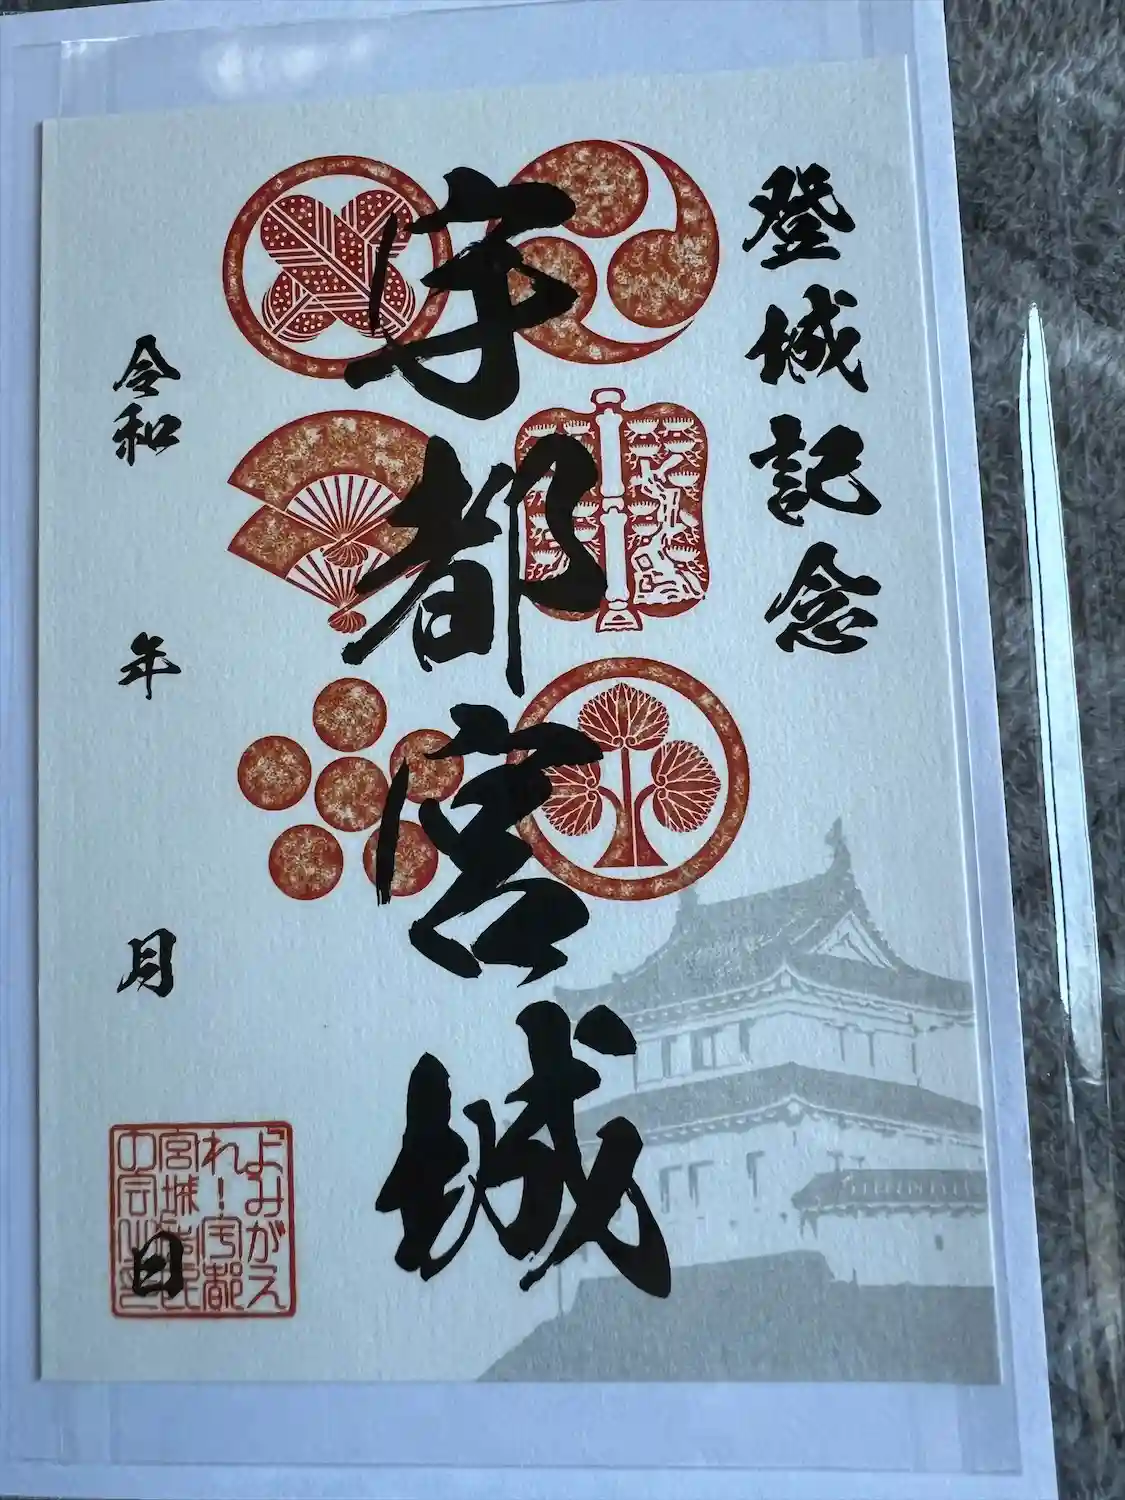 登城記念
宇都宮城
令和 年 月 日
よみがえ
れ！宇都
宮城市民
の会之印